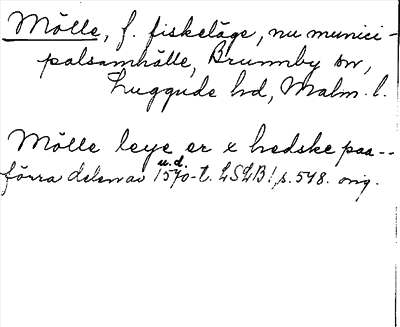 Mölle, f. fiskeläge, nu munici-
palsamhälle, Brunnby sn,
Luggude hd, Malm. l.
Mölle leye er x hedske paa--
u.d.
förra delen av 1570-t. LSLB! s. 548. orig.